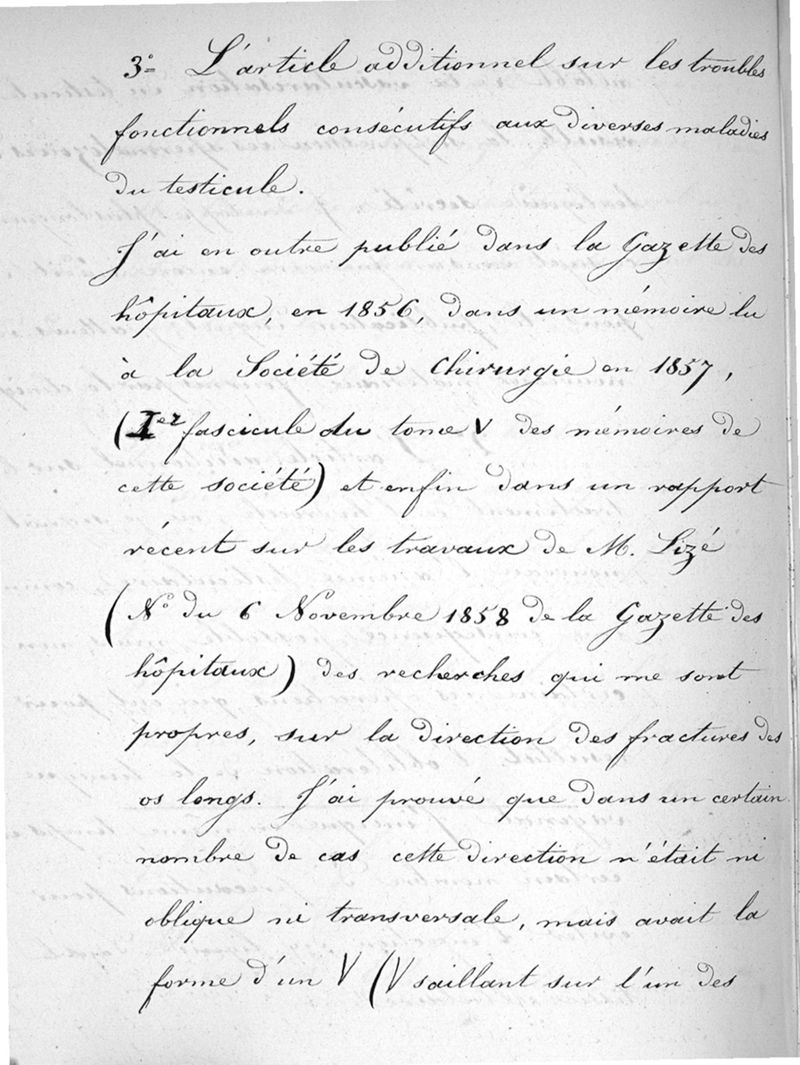 3°= L'article additionnel sur les troubles
fonctionnels consécutifs aux diverses maladies
du testicule.
J'ai en outre publié dans la Gazette des
hôpitaux, en 1856, dans un mémoire lu
à la Société de Chirurgie en 1857,
(Ier fascicule du tome V des mémoires de
cette société) et enfin dans un rapport
récent sur les travaux de M. Lizé
(N° du 6 Novembre 1858 de la Gazette des
hôpitaux) des recherches qui me sont
propres, sur la direction des fractures des
os longs. J'ai prouvé que dans un certain
nombre de cas cette direction n'était ni
oblique ni transversale, mais avait la
forme d'un V (V saillant sur l'un des